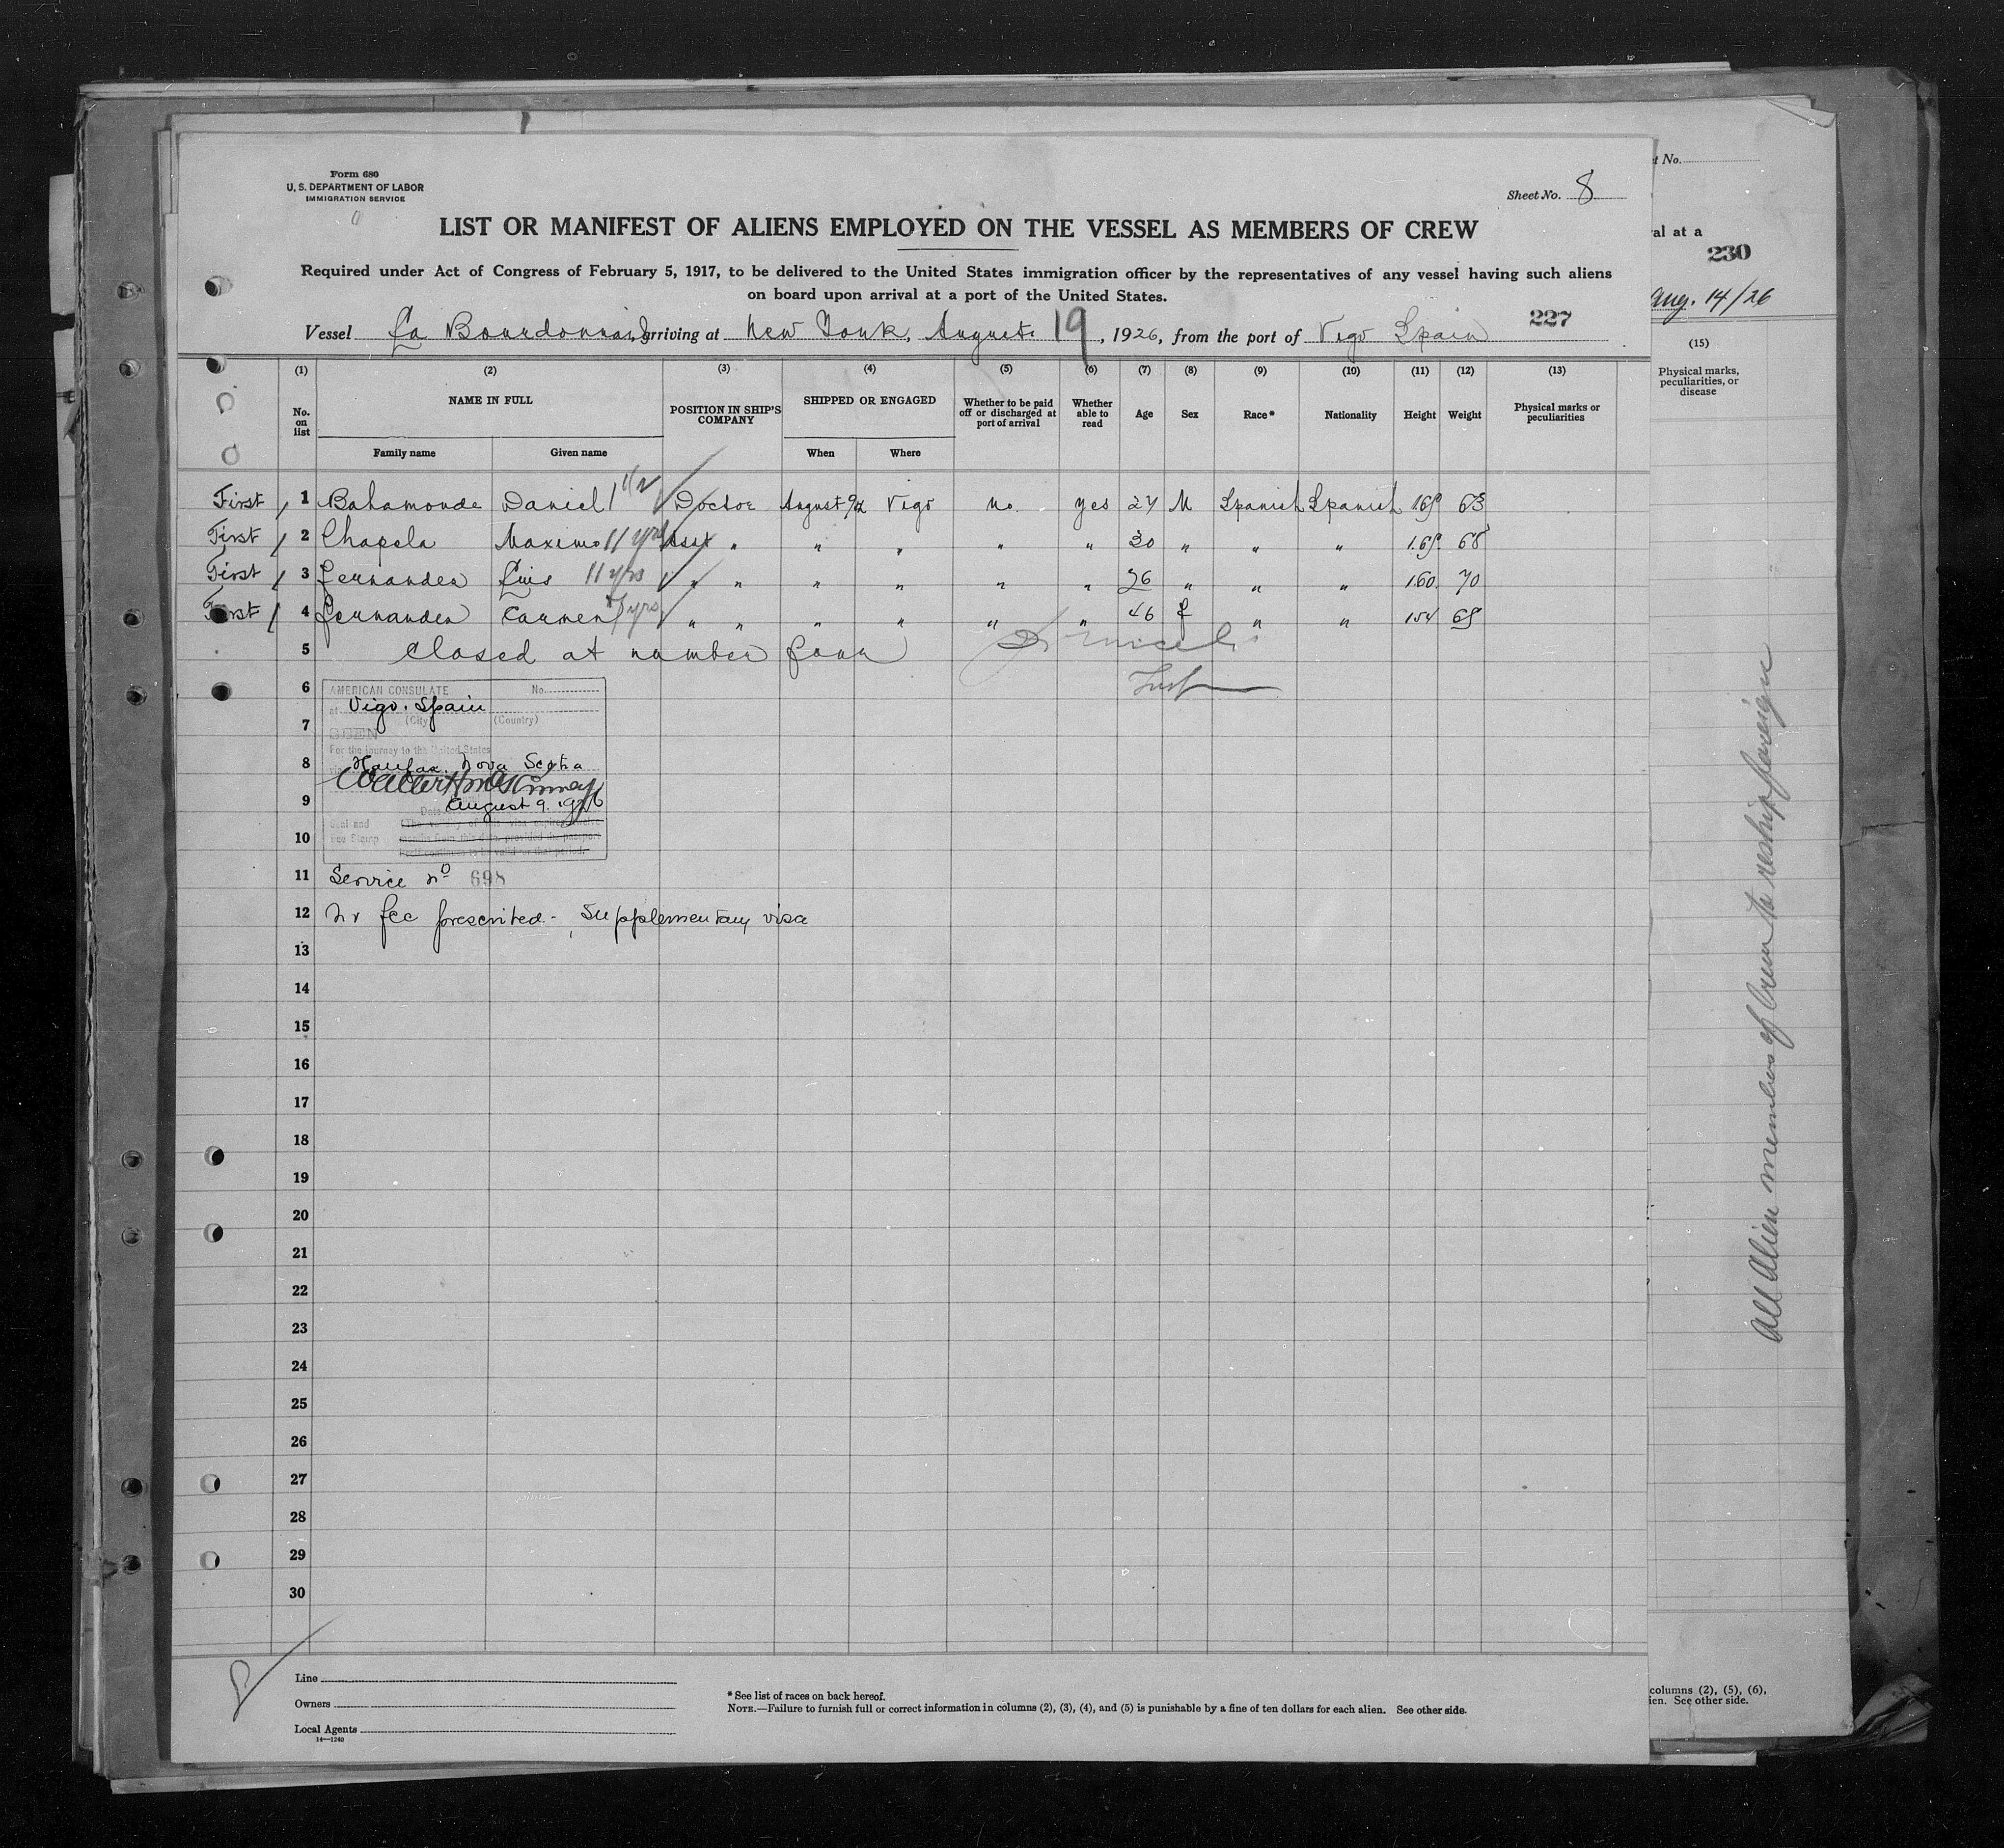 Form 680
U. S. DEPARTMENT OF LABOR
IMMIGRATION SERVICE
Sheet No. 8
LIST OR MANIFEST OF ALIENS EMPLOYED ON THE VESSEL AS MEMBERS OF CREW
Required under Act of Congress of February 5, 1917, to be delivered to the United States immigration officer by the representatives of any vessel having such aliens
on board upon arrival at a port of the United States.
227
Vessel La Bourdonnais, arriving at New York, August 19, 1926, from the port of Vigo Spain
(1) (2) (3) (4) (5) (6) (7) (8) (9) (10) (11) (12) (13)
No. on list NAME IN FULL POSITION IN SHIP'S COMPANY SHIPPED OR ENGAGED Whether to be paid off or discharged at port of arrival Whether able to read Age Sex Race* Nationality Height Weight Physical marks or peculiarities
Family name Given name When Where
First 1 Bahamonde Daniel 1 1/2 Doctor August 9/26 Vigo no. yes 27 M Spanish Spanish 169 63
First 2 Chapela Maximo 11 yrs Asst " " " " " 30 " " " 1.69 68
First 3 Fernandez Luis 11 yrs " " " " " " 26 " " " 160. 70
First 4 Fernandez Carmen yrs " " " " " " 46 f " " 154 69
5 Closed at number four
6 AMERICAN CONSULATE No.
at Vigo. Spain
7 (City) (Country)
SEEN
For the journey to the United States
8 Halifax, Nova Scotia
9 August 9. 1926
Date
10 Seal and Fee Stamp
11 Service No 698
12 No fee prescribed - Supplementary visa
13
14
15
16
17
18
19
20
21
22
23
24
25
26
27
28
29
30
Line
Owners
Local Agents
14—1240
* See list of races on back hereof.
NOTE.—Failure to furnish full or correct information in columns (2), (3), (4), and (5) is punishable by a fine of ten dollars for each alien. See other side.
t No.
val at a
230
Aug. 14/26
(15)
Physical marks, peculiarities, or disease
All Alien members of crew to reship foreign
columns (2), (5), (6),
ien. See other side.